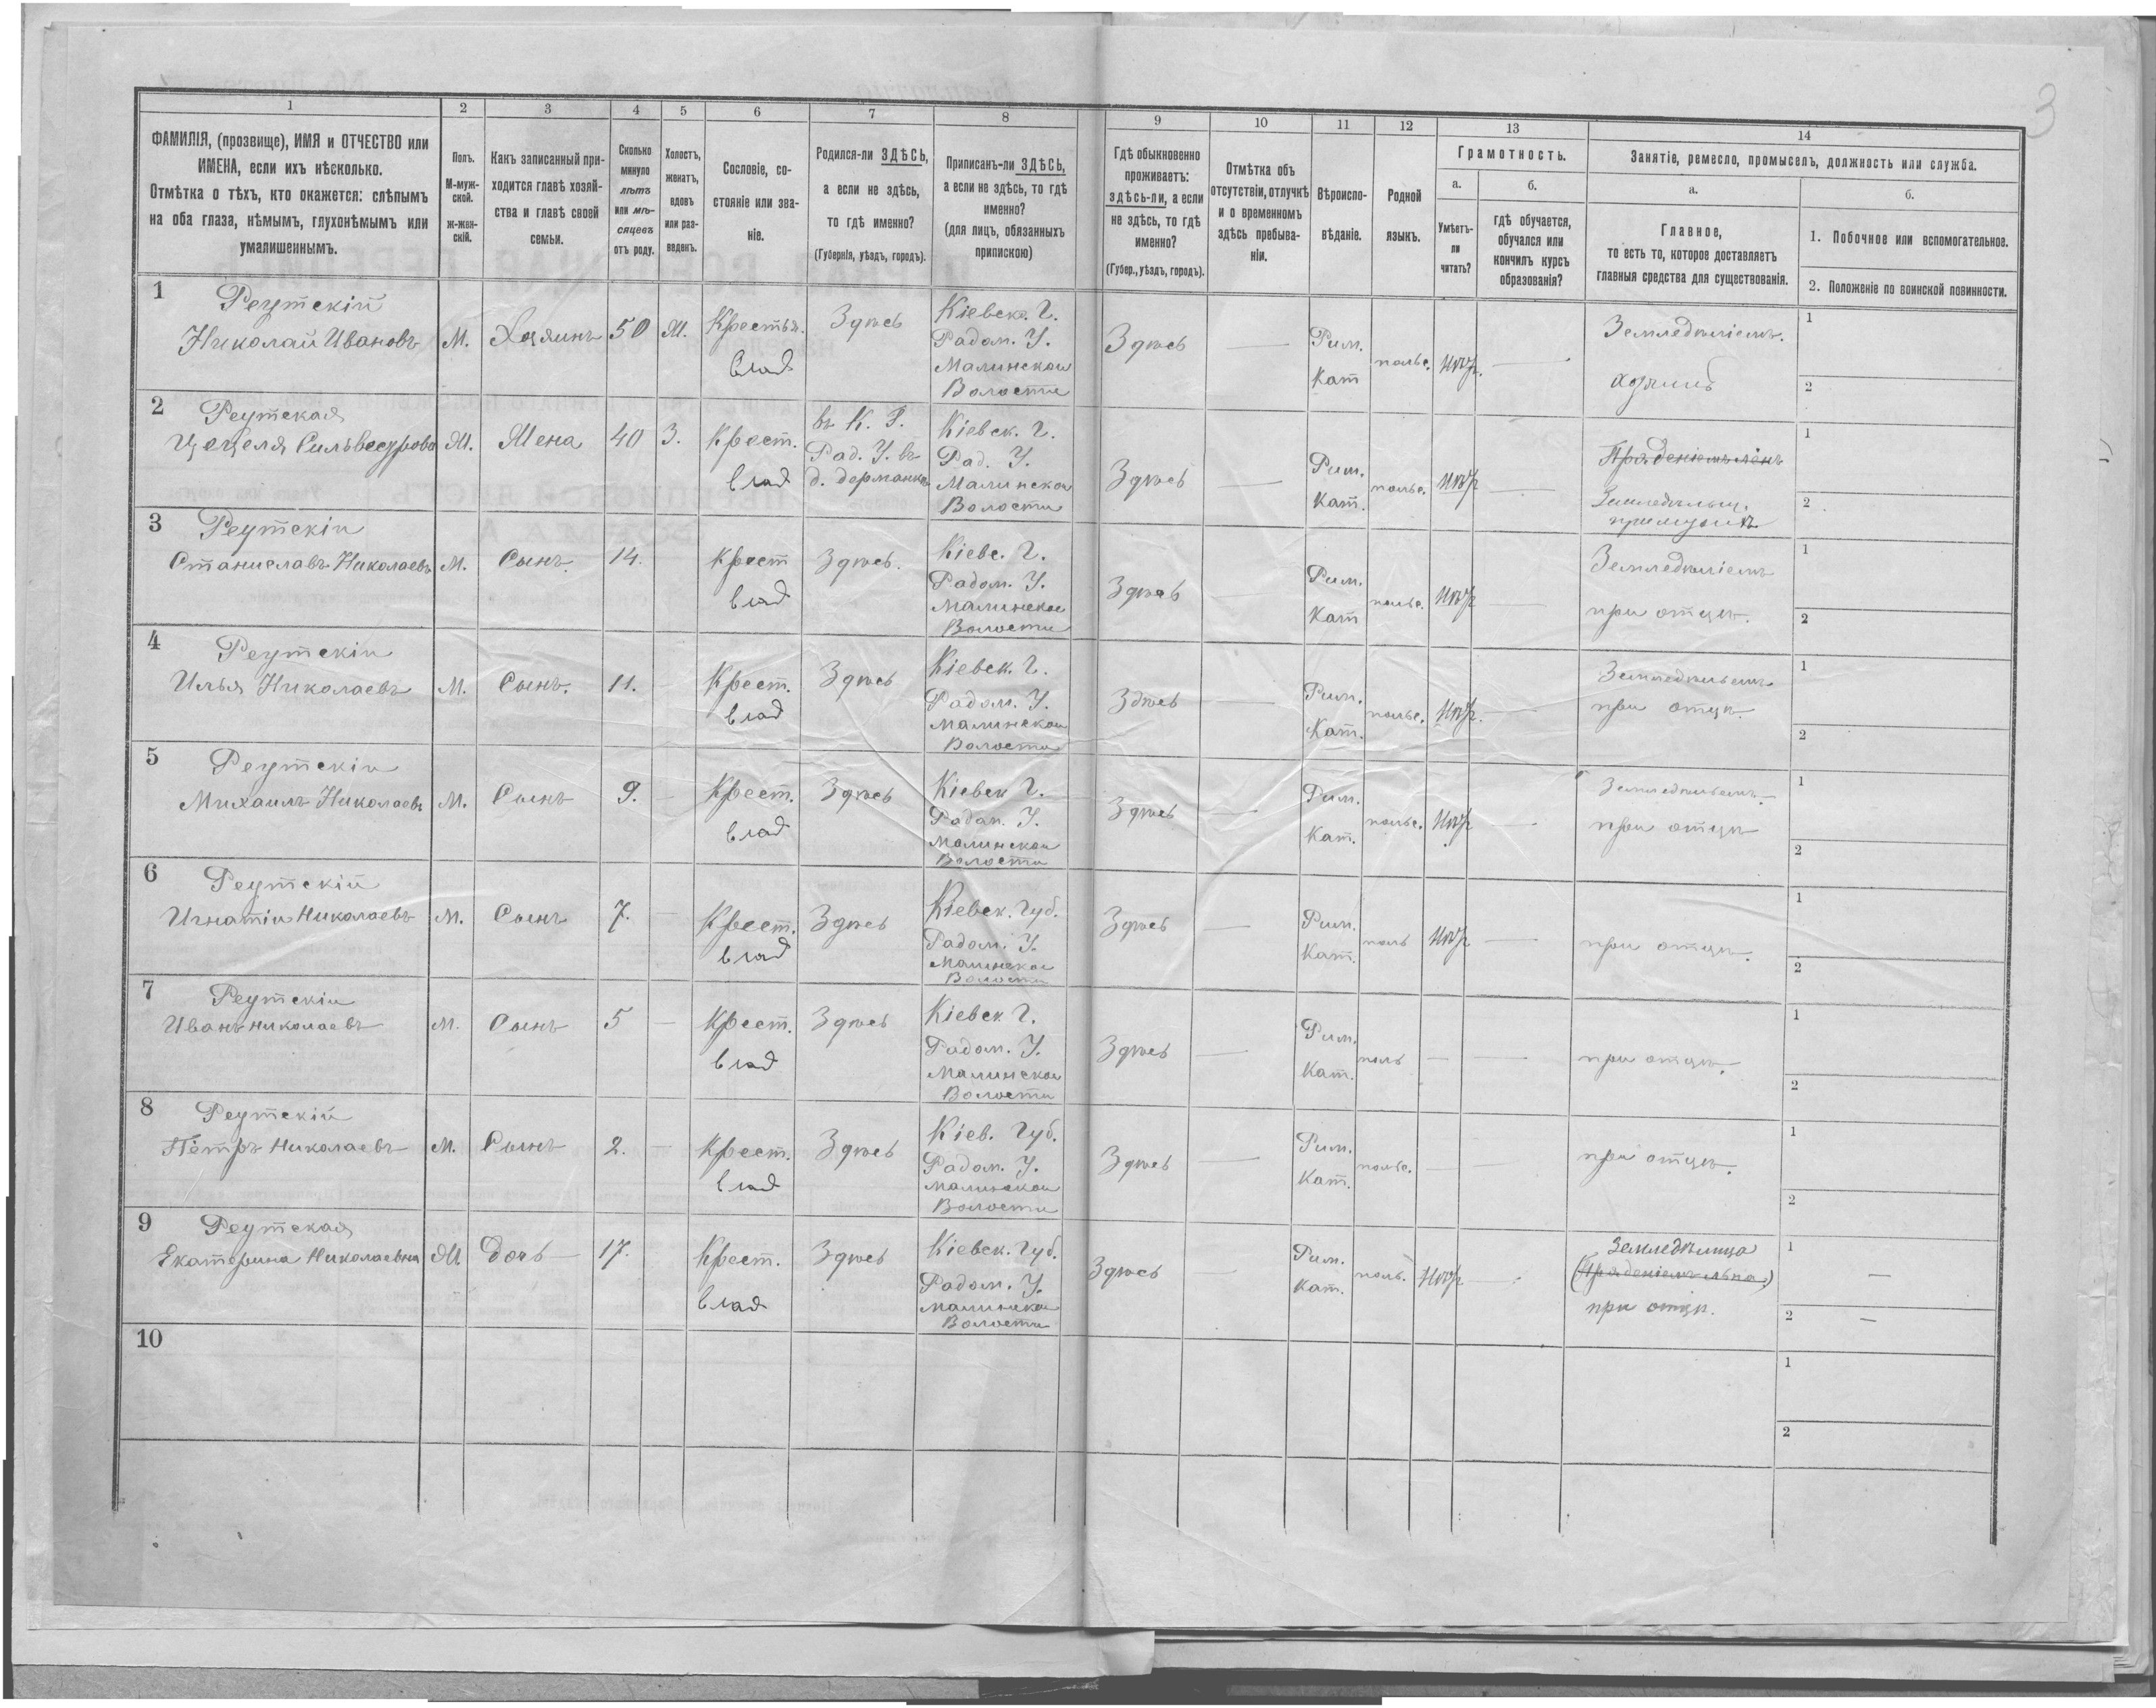 3
1 2 3 4 5 6 7 8 9 10 11 12 13 14
ФАМИЛІЯ, (прозвище), ИМЯ и ОТЧЕСТВО или
ИМЕНА, если ихъ нѣсколько.
Отмѣтка о тѣхъ, кто окажется: слѣпымъ
на оба глаза, нѣмымъ, глухонѣмымъ или
умалишеннымъ.
Полъ.
М-муж-
ской.
ж-жен-
скій.
Какъ записанный при-
ходится главѣ хозяй-
ства и главѣ своей
семьи.
Сколько
минуло
лѣтъ
или мѣ-
сяцевъ
отъ роду.
Холостъ,
женатъ,
вдовъ
или раз-
веденъ.
Сословіе, со-
стояніе или зва-
ніе.
Родился-ли ЗДѢСЬ,
а если не здѣсь,
то гдѣ именно?
(Губернія, уѣздъ, городъ).
Приписанъ-ли ЗДѢСЬ,
а если не здѣсь, то гдѣ
именно?
(для лицъ, обязанныхъ
припискою)
Гдѣ обыкновенно
проживаетъ:
здѣсь-ли, а если
не здѣсь, то гдѣ
именно?
(Губер., уѣздъ, городъ).
Отмѣтка объ
отсутствіи, отлучкѣ
и о временномъ
здѣсь пребыва-
ніи.
Вѣроиспо-
вѣданіе.
Родной
языкъ.
Грамотность.
а.
Умѣетъ-
ли
читать?
б.
гдѣ обучается,
обучался или
кончилъ курсъ
образованія?
Занятіе, ремесло, промыселъ, должность или служба.
а.
Главное,
то есть то, которое доставляетъ
главныя средства для существованія.
б.
1. Побочное или вспомогательное.
2. Положеніе по воинской повинности.
1 Реутскій
Николай Ивановъ М. Хозяинъ 50 Крестья. Здѣсь
влад
Кіевск. Г.
Радом. У.
Малинской
Волости
Здѣсь — Рим. Кат польс. —
Земледѣліемъ.
хозяинъ
1
2
2 Реутская
Цецеля Жена 40 3. Крест.
влад
въ К. Г.
Рад. У. въ
д.
Кіевск. Г.
Рад. У.
Малинской
Волости
Здѣсь — Рим. Кат. польс. —
1
2
3 Реутскій
Станиславъ Николаевъ М. Сынъ. 14. Крест
влад
Здѣсь.
Кіевс. Г.
Радом. У.
Малинской
Волости
Здѣсь Рим. Кат польс.
Земледѣліемъ
при отцѣ.
1
2
4 Реутскій
Илья Николаевъ М. Сынъ. 11. Крест.
влад
Здѣсь
Кіевск. Г.
Радом. У.
Малинской
Волости
Здѣсь — Рим. Кат. польс. —
при отцѣ.
1
2
5 Реутскій
Михаилъ Николаевъ М. Сынъ 9. Крест.
влад
Здѣсь
Кіевск Г.
Радом. У.
Малинской
Волости
Здѣсь — Рим. Кат. польс. —
при отцѣ
1
2
6 Реутскій
Игнатій Николаевъ М. Сынъ 7. Крест.
влад
Здѣсь
Кіевск. Губ.
Радом. У.
Малинской
Волости
Здѣсь — Рим. Кат. поль —
при отцѣ.
1
2
7 Реутскій
Иванъ Николаевъ М. Сынъ 5 — Крест.
влад
Здѣсь
Кіевск Г.
Радом. У.
Малинской
Волости
Здѣсь — Рим. Кат. поль — —
при отцѣ.
1
2
8 Реутскій
Петръ Николаевъ М. Сынъ 2. — Крест.
влад
Здѣсь
Кіев. Губ.
Радом. У.
Малинской
Волости
Здѣсь — Рим. Кат. польс. — —
при отцѣ.
1
2
9 Реутская
Екатерина Николаевна Ж Дочь 17. Крест.
влад
Здѣсь
Кіевск. Губ.
Радом. У.
Малинской
Волости
Здѣсь — Рим. Кат. поль.
при отцѣ.
1 —
2 —
10
1
2